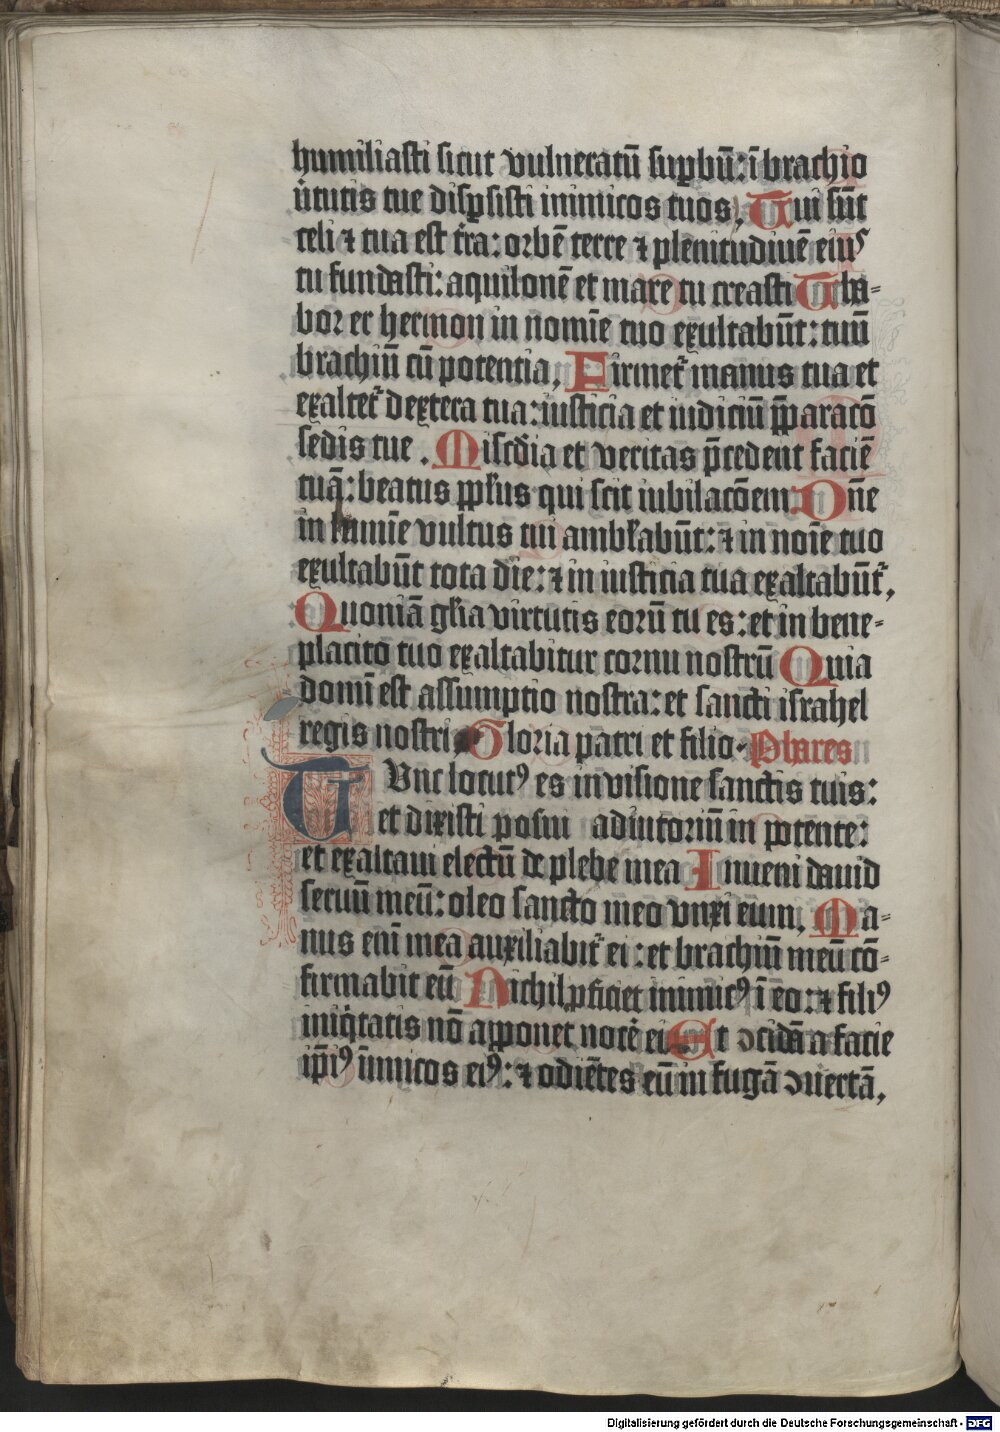 humiliasti sicut vulneratū suꝑbū: ī brachio
v̓tutis tue disꝑsisti inimicos tuos, Tui sūt
celi ⁊ tua est t̓ra: orbē terre ⁊ plenitudinē eiuˢ
tu fundasti: aquilonē et mare tu creasti Tha-
bor et hermon in nomīe tuo exultabūt: tuū
brachiū cū potentia, Firmet᷑ manus tua et
exaltet᷑ dextera tua: iusticia et iudiciū p̄paracō
sedis tue. Miscd̓ia et veritas p̄cedent faciē
tuā: beatus ppl̓us qui scit iubilacōem: Dn̄e
in lumīe vultus tui ambl̓abūt: ⁊ in noīe tuo
exultabūt tota die: ⁊ in iusticia tua exaltabūt᷑,
Quoniā gl̓ia virtutis eorū tu es: et in bene-
placito tuo exaltabitur cornu nostrū Quia
domī est assumptio nostra: et sancti israhel
regis nostri Gloria patri et filio. Plures
TVnc locutꝰ es in visione sanctis tuis:
et dixisti posui adiutoriū in potente:
et exaltaui electū de plebe mea Inueni dauid
seruū meū: oleo sancto meo vnxi eum, Ma-
nus enī mea auxiliabit᷑ ei: et brachiū meū cō-
firmabit eū Nichil ꝓficiet inimicꝰ ī eo: ⁊ filiꝰ
iniq̓tatis nō apponet nocē ei Et ↄcidā a facie
ip̄iꝰ īimicos eiꝰ: ⁊ odiētes eū in fugā ↄuertā,
Digitalisierung gefördert durch die Deutsche Forschungsgemeinschaft - DFG